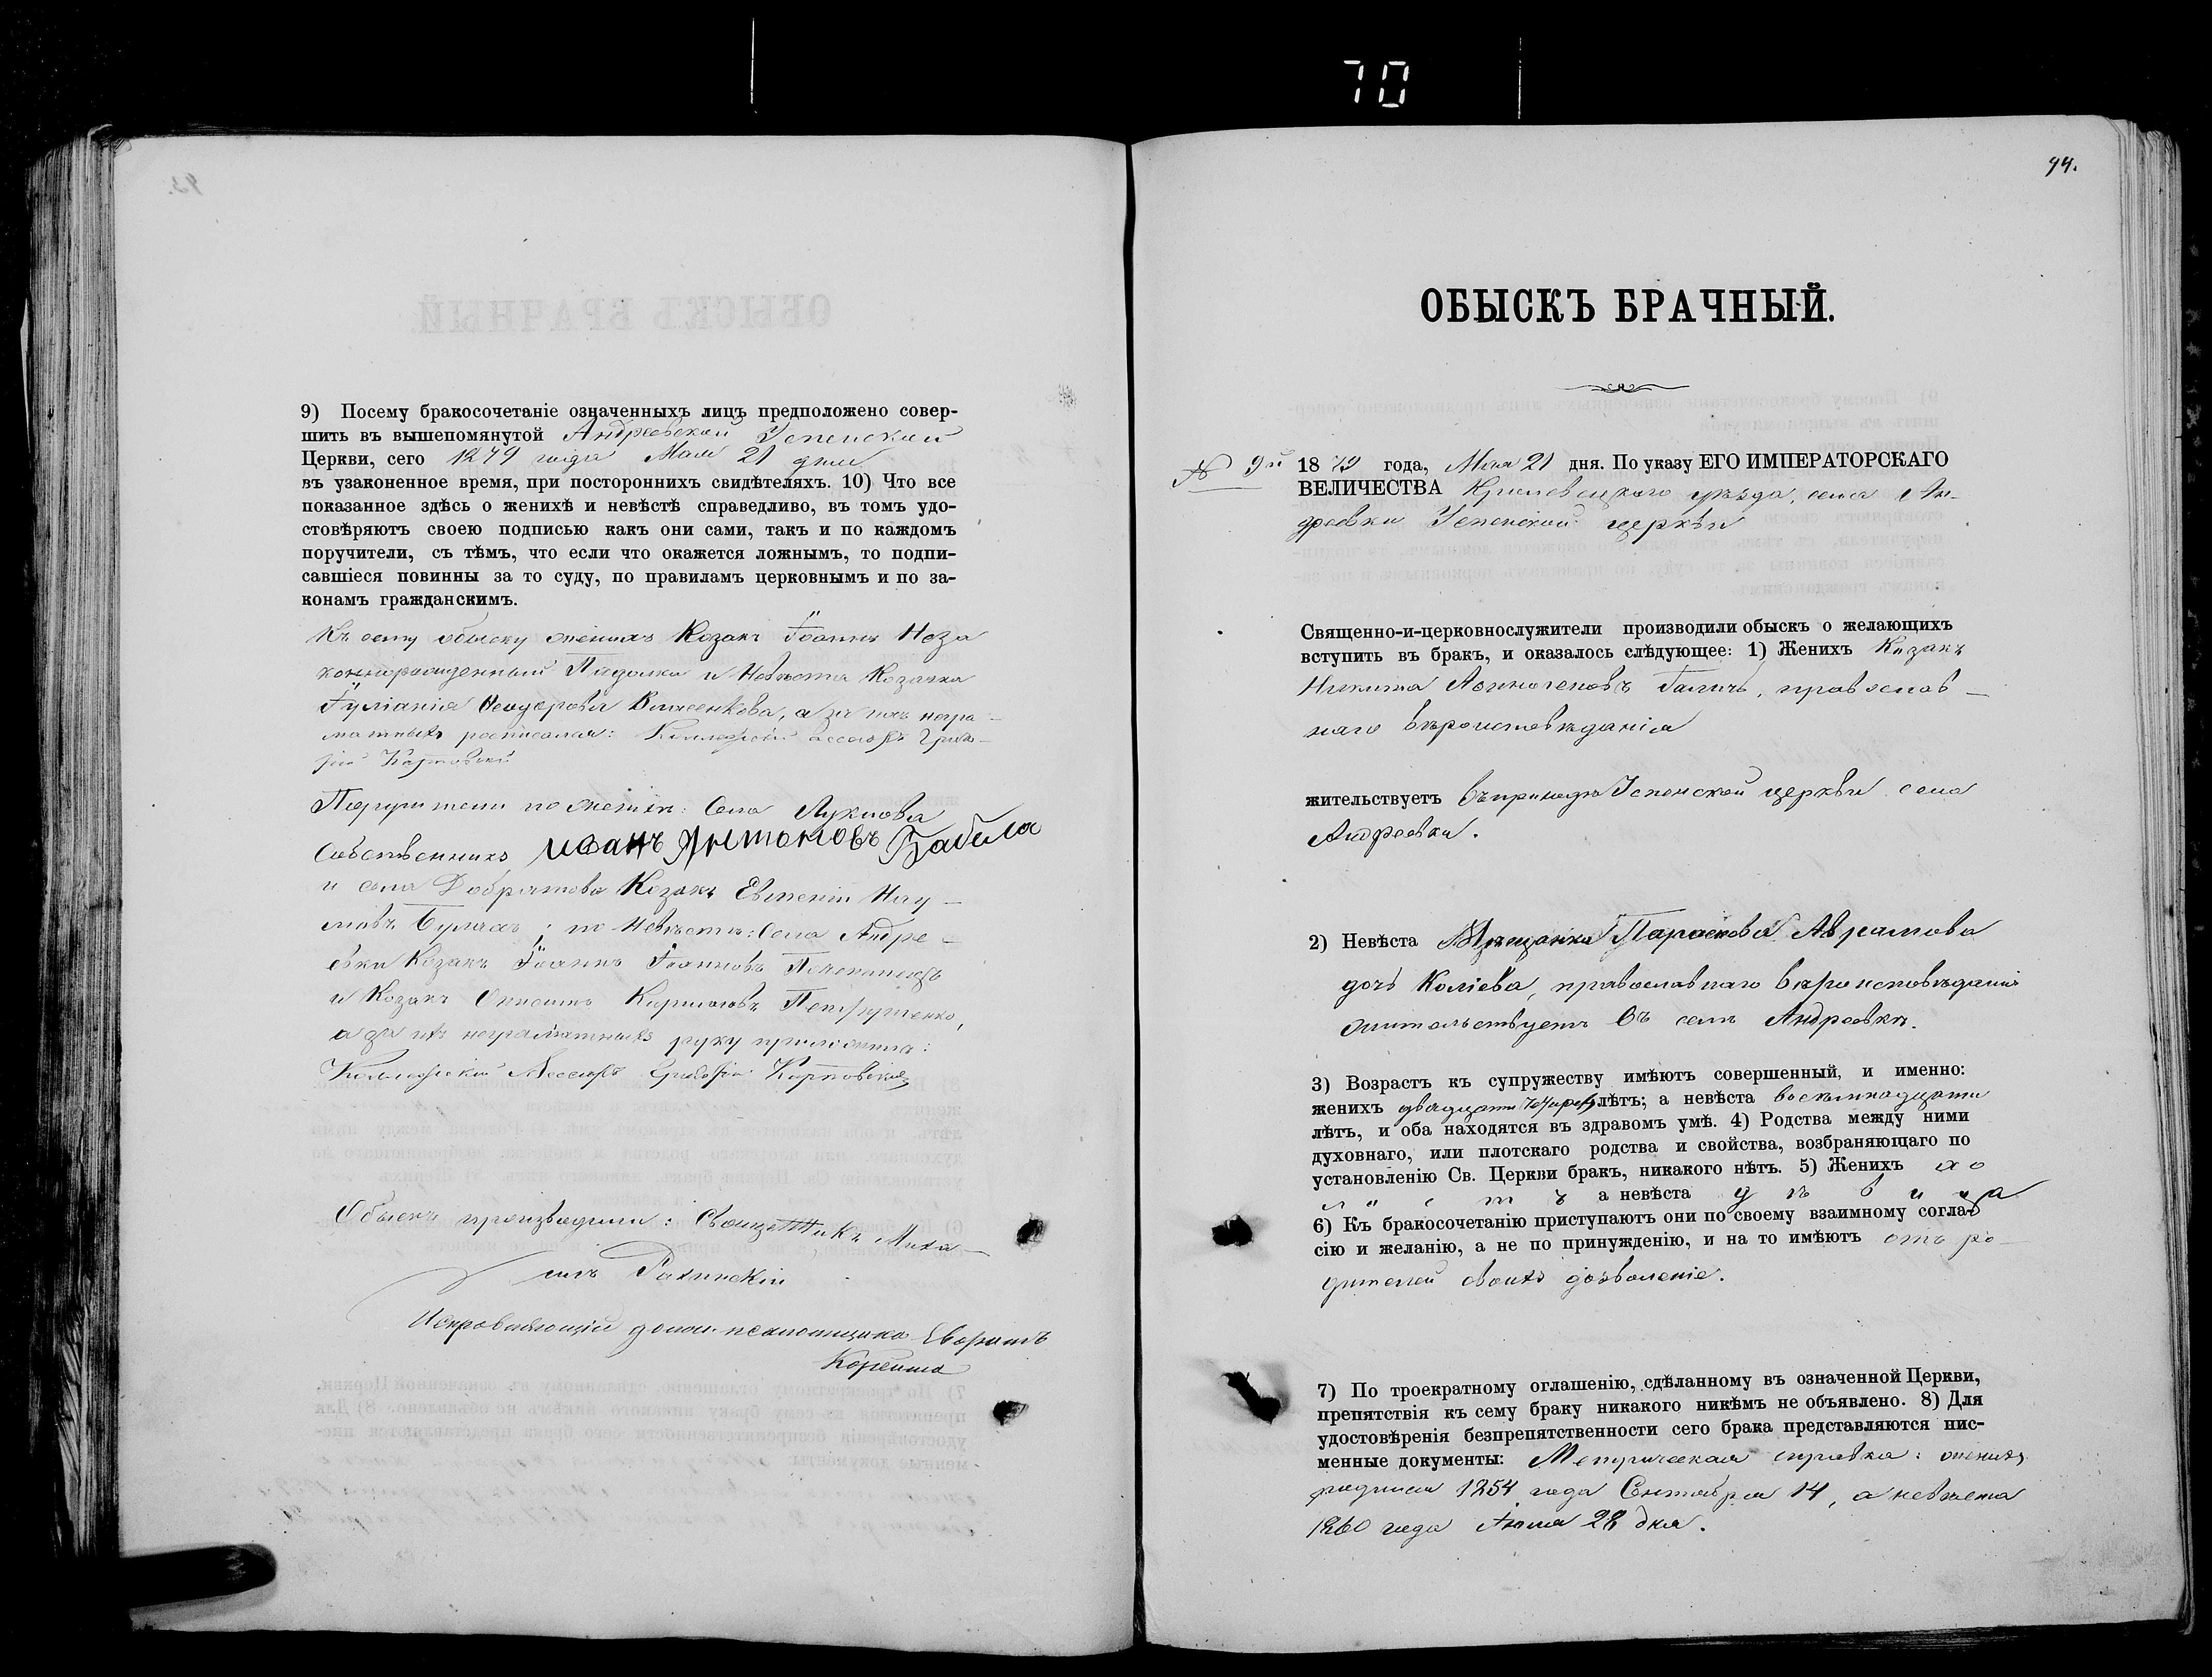 70
9) Посему бракосочетаніе означенныхъ лицъ предположено совер-
шить въ вышепомянутой Андреевской Успенской
Церкви, сего 1879 года Мая 21 дня
въ узаконенное время, при постороннихъ свидѣтеляхъ. 10) Что все
показанное здѣсь о женихѣ и невѣстѣ справедливо, въ томъ удо-
стовѣряютъ своею подписью какъ они сами, такъ и по каждомъ
поручители, съ тѣмъ, что если что окажется ложнымъ, то подпи-
савшіеся повинны за то суду, по правиламъ церковнымъ и по за-
конамъ гражданскимъ.
Къ сему обыску женихъ Козакъ Іоаннъ Неза
коннорожденный и Невѣста Козачка
Іуліанія Ѳеодорова, а за нихъ негра-
матныхъ росписался: Коллежскій ассесоръ Григо-
рій
Поручители по женихѣ: Села
Собственникъ Иванъ Антоновъ Бабила
и села Козакъ Евгеній Нау-
мовъ; по Невѣстѣ: Села Андре-
евки Козакъ Іоаннъ Іоанновъ
и Козакъ Петрушенко,
а за ихъ неграматныхъ руку приложилъ:
Коллежскій Ассесоръ Григорій
Обыскъ производили: Священникъ Миха-
илъ
должн. псаломщика
94.
ОБЫСКЪ БРАЧНЫЙ.
№ 9й 1879 года, Мая 21 дня. По указу ЕГО ИМПЕРАТОРСКАГО
ВЕЛИЧЕСТВА уѣзда, села Ан-
дреевки Успенской церкви
Священно-и-церковнослужители производили обыскъ о желающихъ
вступить въ бракъ, и оказалось слѣдующее: 1) Женихъ Козакъ
Никита Галичъ, православ-
наго вѣроисповѣданія
жительствуетъ въ приходѣ Успенской церкви села
Андреевки.
2) Невѣста Мѣщанка Параскева Аврамова
дочь Коліева, православнаго вѣроисповѣданія
жительствуетъ въ селѣ Андреевкѣ.
3) Возрастъ къ супружеству имѣютъ совершенный, и именно:
женихъ двадцати четырехъ лѣтъ; а невѣста восемнадцати
лѣтъ, и оба находятся въ здравомъ умѣ. 4) Родства между ними
духовнаго, или плотскаго родства и свойства, возбраняющаго по
установленію Св. Церкви бракъ, никакого нѣтъ. 5) Женихъ хо
лостъ а невѣста дѣвица
6) Къ бракосочетанію приступаютъ они по своему взаимному согла-
сію и желанію, а не по принужденію, и на то имѣютъ отъ ро-
дителей своихъ дозволеніе.
7) По троекратному оглашенію, сдѣланному въ означенной Церкви,
препятствія къ сему браку никакого никѣмъ не объявлено. 8) Для
удостовѣренія безпрепятственности сего брака представляются пис-
менные документы: Метрическая справка: женихъ
родился 1854 года Сентября 14, а невѣста
1860 года 28 дня.